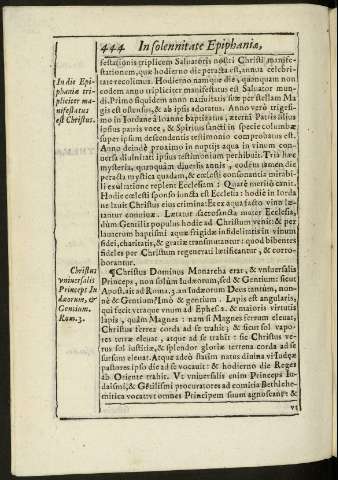 444 In solennitate Epiphaniæ,
In die Epi-
phaniæ tri-
pliciter ma-
nifestatus
est Christus.
festationis triplicem Saluatoris nostri Christi manife-
stationem, quæ hodierno die peracta est, annua celebri-
tate recolimus. Hodierno namque die, quamquam non
eodem anno tripliciter manifestatus est Saluator mun-
di. Primo siquidem anno natiuitatis suæ per stellam Ma
gis est ostensus, & ab ipsis adoratus. Anno verò trigesi-
mo in Iordane à Ioanne baptizatur, æterni Patris filius
ipsius patris voce, & Spiritus sancti in specie columbæ
super ipsum descendentis testimonio comprobatus est.
Anno deinde proximo in nuptijs aqua in vinum con-
uersa diuinitati ipsius testimonium perhibuit. Tria hæc
mysteria, quamquam diuersis annis, eodem tamen die
peracta mystica quadam, & ecclesiæ consonantia mirabi-
li exultatione replent Ecclesiam: Quare meritò canit.
Hodie cœlesti sponso iuncta est Ecclesia: hodie in Iorda
ne lauit Christus eius crimina: & ex aqua facto vino læ-
tantur conuiuæ. Lætatur sacrosancta mater Ecclesia,
dum Gentilis populus hodie ad Christum venit: & per
lauacrum baptismi aquæ frigidæ infidelitatis in vinum
fidei, charitatis, & gratiæ transmutantur: quod bibentes
fideles per Christum regenerati lætificantur, & corro-
borantur.
Christus
vniuersalis
Princeps Iu
dæorum, &
Gentium.
Rom. 3.
¶Christus Dominus Monarcha erat, & vniuersalis
Princeps, non solùm Iudæorum, sed & Gentium: sicut
Apost. ait ad Roma. 3. an Iudæorum Deus tantùm, non-
nè & Gentium? Imò & gentium. Lapis est angularis,
qui fecit vtraque vnum ad Ephes. 2. & maioris virtutis
lapis, quàm Magnes: nam si Magnes ferrum eleuat,
Christus ferrea corda ad se trahit; & sicut sol vapo-
res terræ eleuat, atque ad se trahit: sic Christus ve-
rus sol iustitiæ, & splendor gloriæ terrena corda ad se
sursum eleuat. Atque adeò statim natus diuina vi Iudæos
pastores ipso die ad se vocauit: & hodierno die Reges
ab Oriente trahit. Vt vniuersalis enim Princeps Iu-
daismi, & Gētilismi procuratores ad comitia Bethlehe-
mitica vocauit omnes Principem suum agnoscant: &
vt